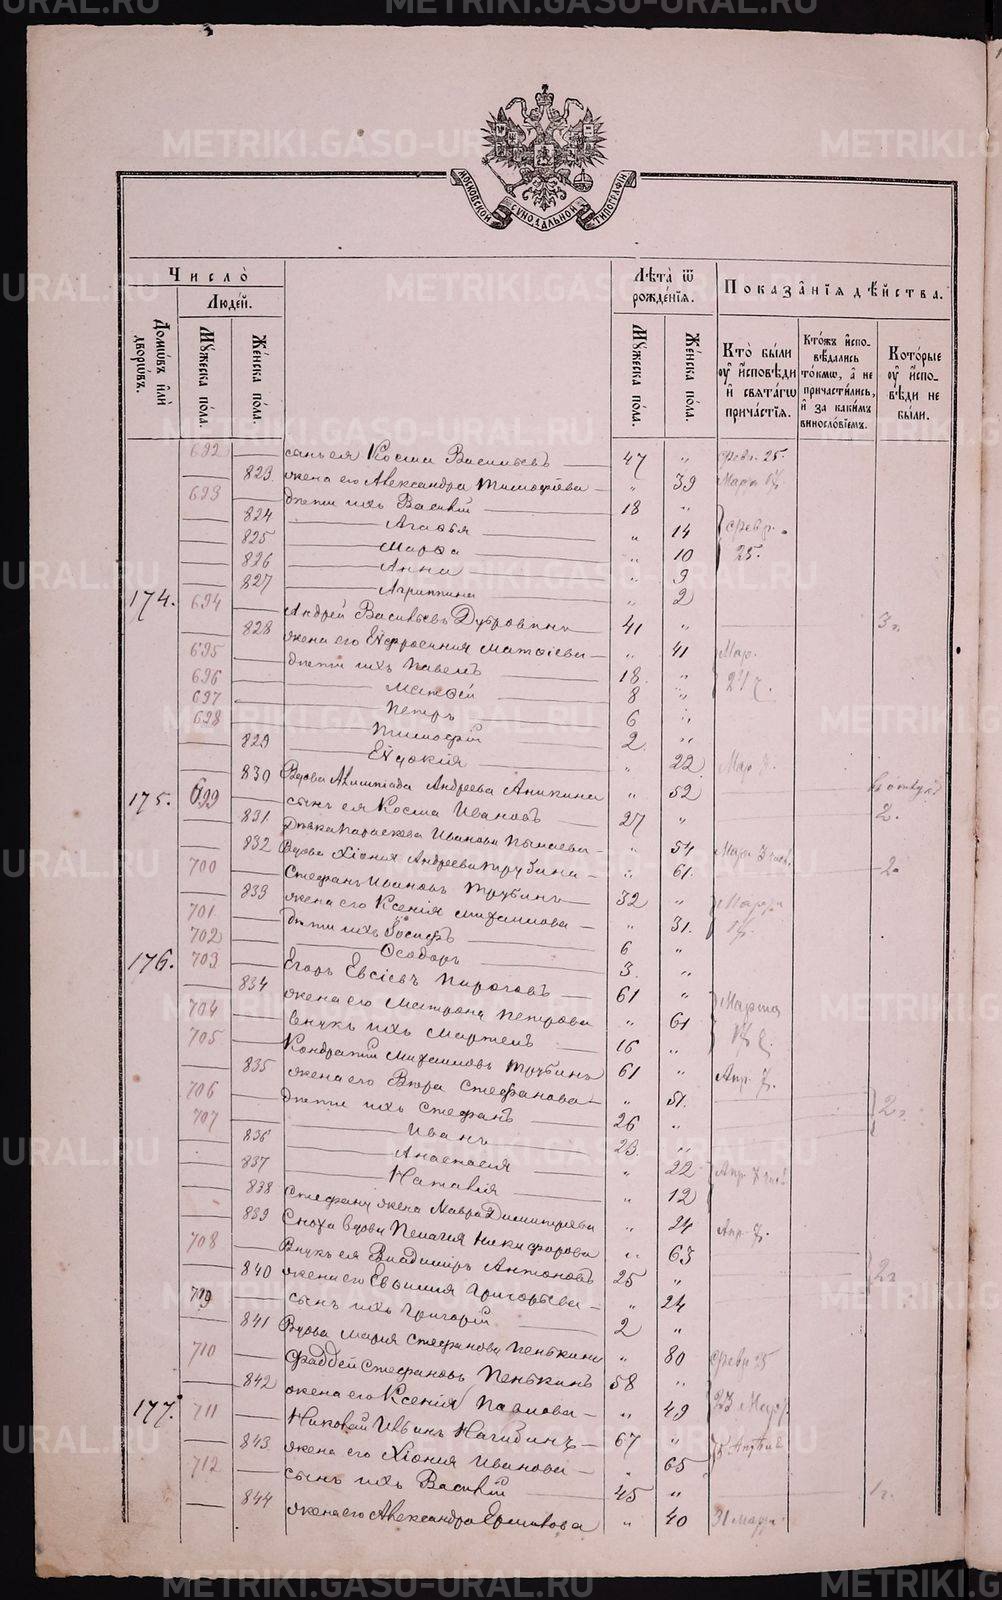 METRIKI.GASO-URAL.RU
МОСКОВСКОЙ СѴНОДАЛЬНОЙ ТИПОГРАФІИ
Число̀
Люде́й.
Домѡ́въ и҆лѝ дворѡ́въ.
Мꙋ́жеска по́ла.
Же́нска по́ла.
Лѣ́та ѿ рожде́нїѧ.
Мꙋ́жеска по́ла.
Же́нска по́ла.
Показа̑нїѧ дѣ́йства.
Кто̀ бы́ли ᲂу҆ и҆сповѣ́ди и҆ свѧта́гѡ прича́стїѧ.
Кто́жъ и҆спо-вѣ́дались то́кмѡ, а҆ не причасти́лись, и҆ за каки́мъ винословїемъ.
Кото́рые ᲂу҆ и҆спо-вѣ́ди не бы́ли.
692 сынъ ея Косма Васильевъ 47 " февр. 25.
823 жена его Александра Тимофѣева " 39 Март
693 дѣти ихъ Василій 18 "
824 Агафья " 14 февр.
825 Марѳа " 10 25.
826 Анна " 9
827 Агриппина " 2
174. 694 Андрей Васильевъ Дубровинъ 41 " 3 г.
828 жена его Евфросинія Матѳіева " 41 Мар.
695 дѣти ихъ Павелъ 18 "
696 Матѳій 8 "
697 Петръ 6 "
698 Тимофій 2 "
829 Евдокія " 22 Мар
830 Вдова Андреева Аникина " 52
175. 699 сынъ ея Косма Ивановъ 27 " 2.
831 Дѣвка Параскева Иванова " 54 Мар.
832 Вдова Хіонія Андреева Трубина " 61 2.
700 Стефанъ Ивановъ Трубинъ 32 " Марта
833 жена его Ксенія Михаилова " 31
701 дѣти ихъ Іосифъ 6 "
702 Ѳеодоръ 3 "
176. 703 Егоръ Евсіевъ Пироговъ 61 " Марта
834 жена его Матрона Петрова " 61
704 внукъ ихъ 16 "
705 Кондратій Михаиловъ Трубинъ 61 " Апр.
835 жена его Вѣра Стефанова " 51
706 дѣти ихъ Стефанъ 26 " 2 г.
707 Иванъ 23 "
836 Анастасія " 22 Апр.
837 Наталія " 12
838 Стефану жена Мавра Димитріева " 24 Апр.
839 Сноха вдова Пелагія Никифорова " 63
708 Внукъ ея Владиміръ Антоновъ 25 " 2 г.
840 жена его Евѳимія Григорьева " 24
709 сынъ ихъ Григорій 2 "
841 Вдова Марія Стефанова Пенькина " 80 февр 25
710 Фаддей Стефановъ Пенькинъ 58 "
842 жена его Ксенія Павлова " 49 23 Мар.
177. 711 Николай Ильинъ Нагибинъ 67 "
843 жена его Хіонія Иванова " 65
712 сынъ ихъ Василій 45 " 1 г.
844 жена его Александра Ермилова " 40 31 Мар